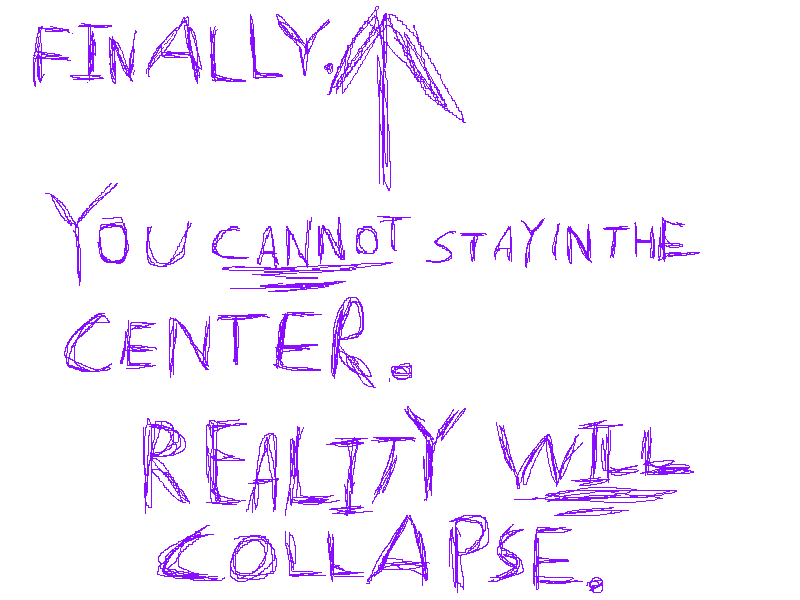 FINALLY.
YOU CANNOT STAY IN THE
CENTER.
REALITY WILL
COLLAPSE.